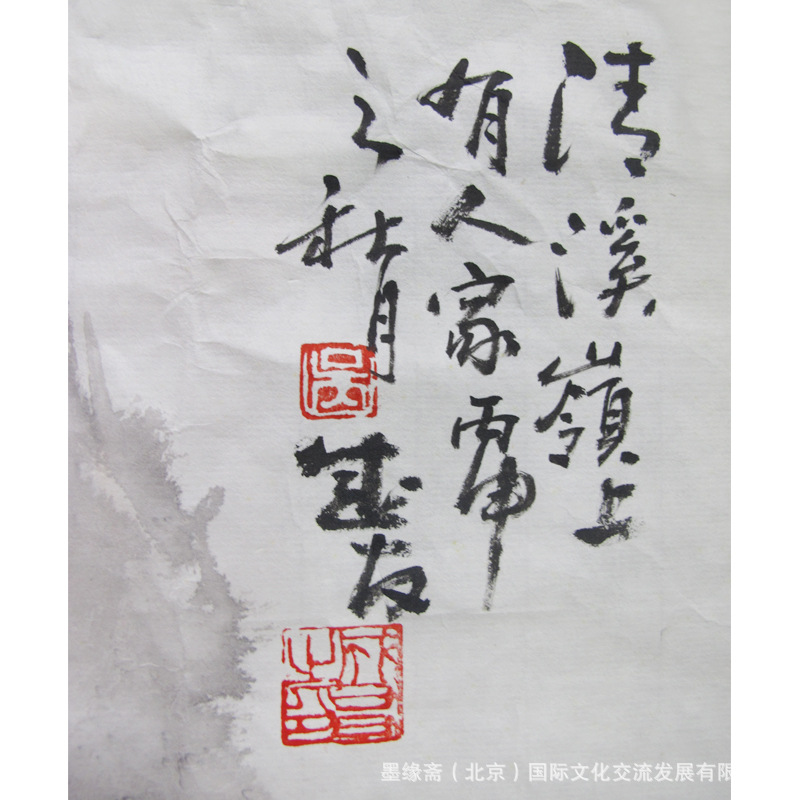 清溪嶺上
有人家丙申
之秋月
吴
之印
墨缘斋（北京）国际文化交流发展有限